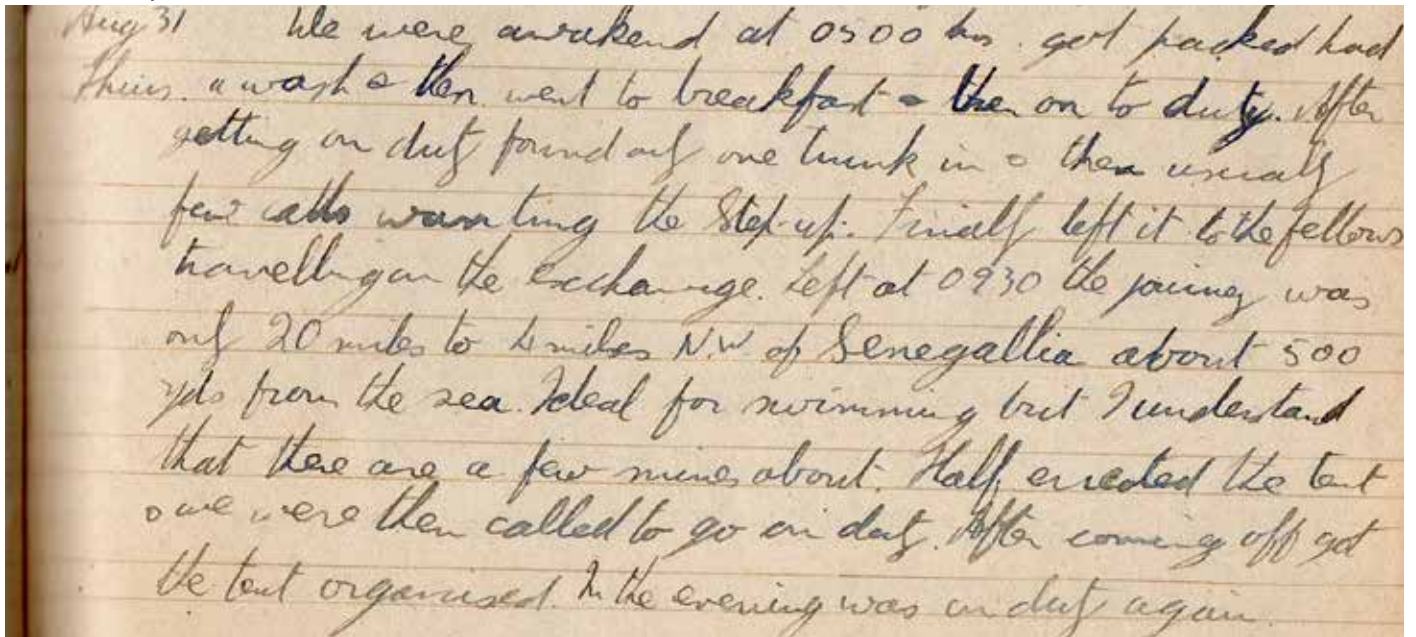 Aug 31 We were awakend at 0500 hrs. got packed had
Thurs. a wash & then went to breakfast & then on to duty. After
getting on duty found only one trunk in & then usually
few calls wanting the Step-up. Finally left it to the fellows
travelling on the exchange. Left at 0930 the journey was
only 20 miles to 4 miles N.W. of Senegallia about 500
yds from the sea. Ideal for swimming but I understand
that there are a few mines about. Half errected the tent
& we were then called to go on duty. After coming off got
the tent organised. In the evening was on duty again.